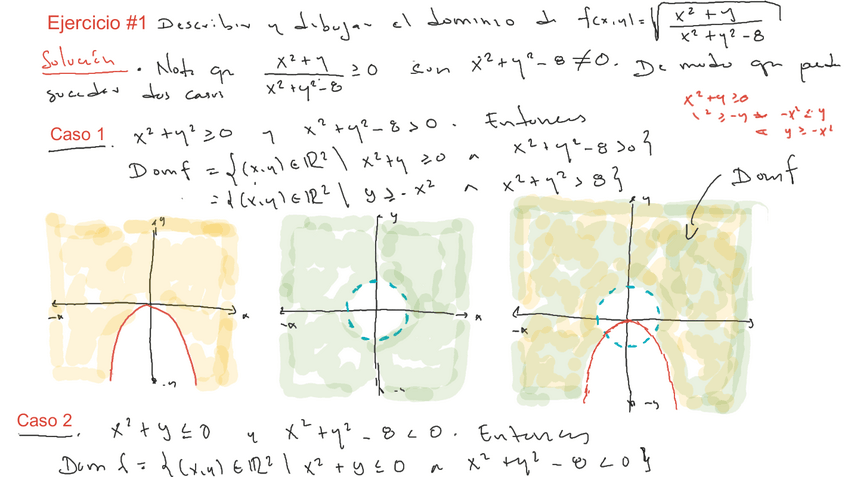 Ejercicio #1 Describir y dibujar el dominio de f(x,y)=√((x²+y)/(x²+y²-8))
Solución. Note que (x²+y)/(x²+y²-8) ≥0 con x²+y²-8≠0. De modo que puede
suceder dos casos
x²+y≥0
x²≥-y ⇔ -x²≤y
⇔ y≥-x²
Caso 1. x²+y²≥0 y x²+y²-8>0. Entonces
Domf = {(x,y)∈ℝ² \ x²+y≥0 ∧ x²+y²-8>0}
= {(x,y)∈ℝ² \ y≥-x² ∧ x²+y²>8}
Domf
y
-x
x
-y
y
-x
x
-y
y
-x
-y
Caso 2. x²+y≤0 y x²+y²-8<0. Entonces
Domf = {(x,y)∈ℝ² \ x²+y≤0 ∧ x²+y²-8<0}